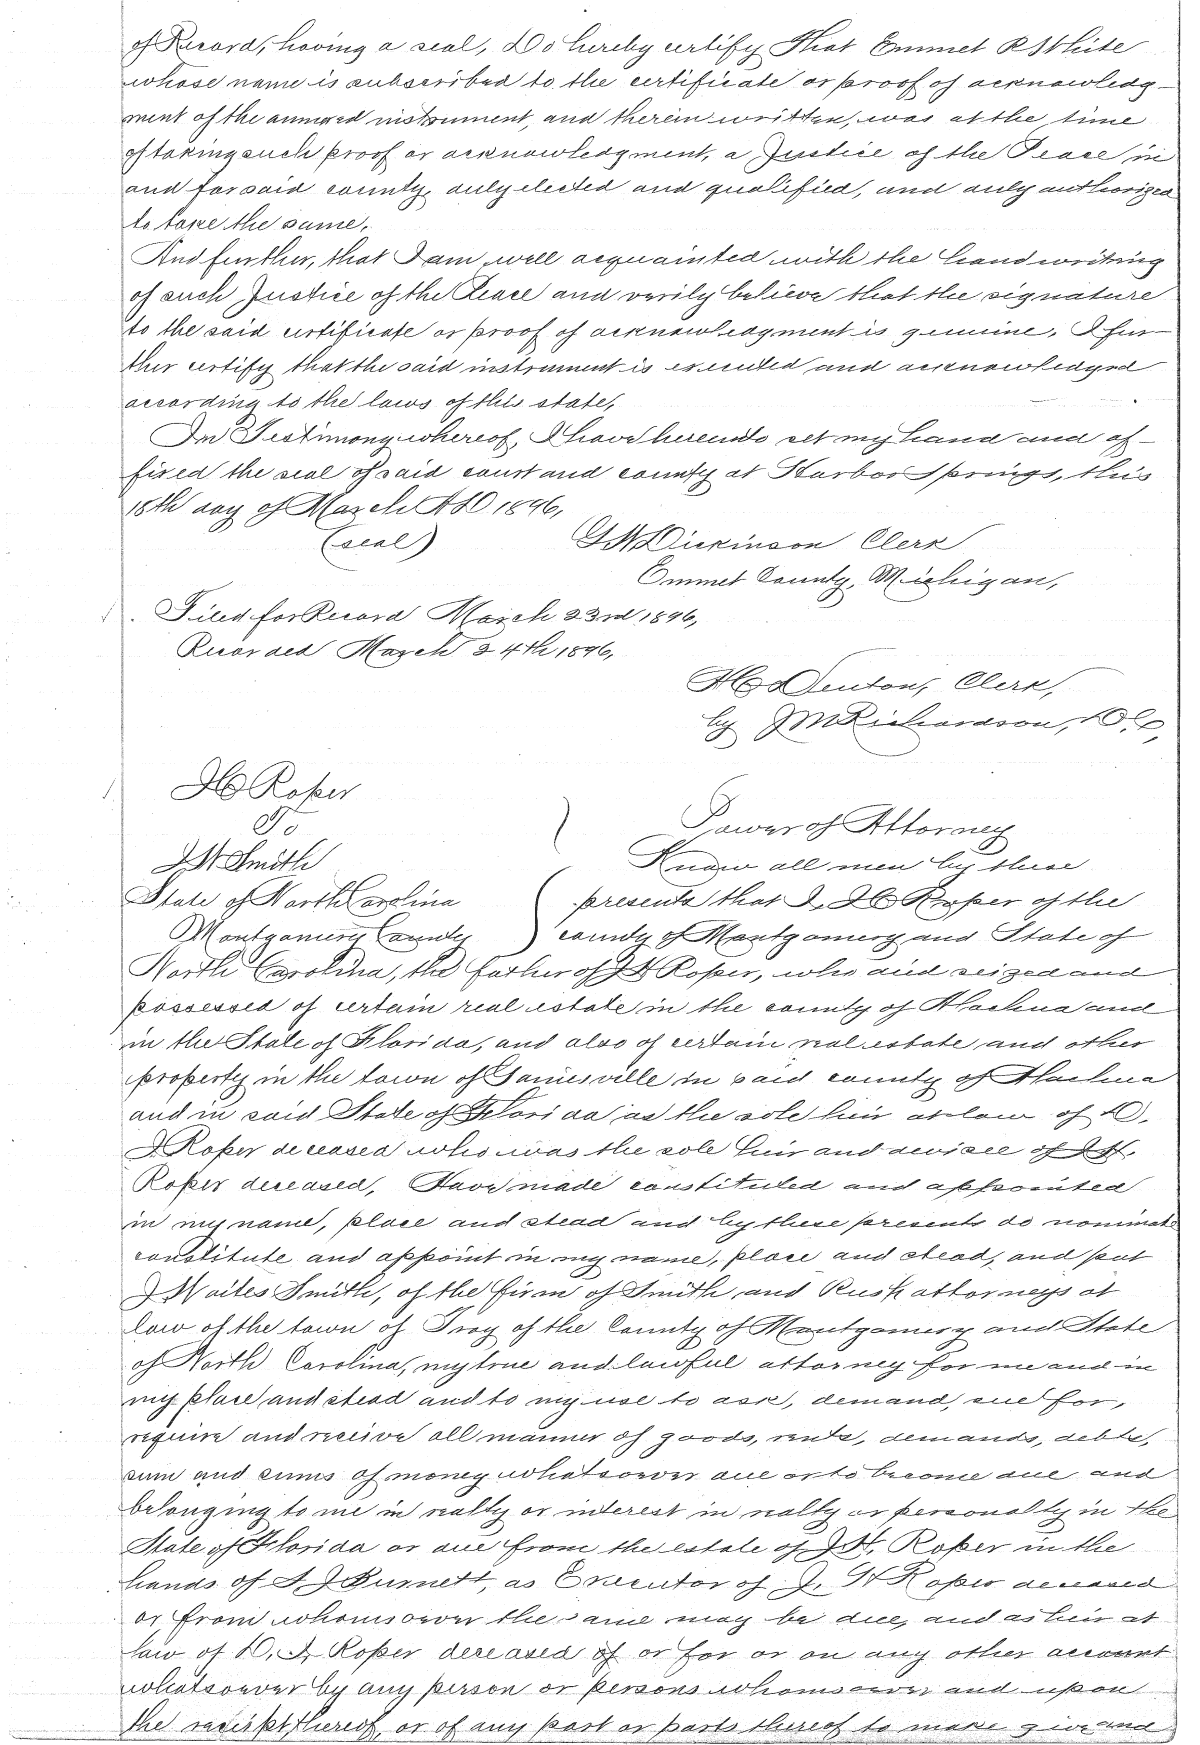 of Record, having a seal, Do hereby certify That Emmet R White
whose name is subscribed to the certificate or proof of acknowledg-
ment of the annexed instrument, and therein written, was at the time
of taking such proof or acknowledgment, a Justice of the Peace in
and for said county, duly elected and qualified, and duly authorized
to take the same.
And further, that I am well acquainted with the handwriting
of such Justice of the Peace and verily believe that the signature
to the said certificate or proof of acknowledgment is genuine. I fur-
ther certify that the said instrument is executed and acknowledged
according to the laws of this state,
In Testimony whereof, I have hereunto set my hand and af-
fixed the seal of said court and county at Harbor Springs, this
18th day of March AD 1896,
(seal) Dickinson Clerk
Emmet County, Michigan,
Filed for Record March 23rd 1896,
Recorded March 24th 1896,
Denton, Clerk,
by J M Richardson, D.C,
Roper
To Power of Attorney
Smith Know all men by these
State of North Carolina presents that I, Roper of the
Montgomery County county of Montgomery and State of
North Carolina, the father of Roper, who died seized and
possessed of certain real estate in the county of Alachua and
in the State of Florida, and also of certain real estate and other
property in the town of Gainesville in said county of Alachua
and in said State of Florida as the sole heir at law of D.
I Roper deceased who was the sole heir and devisee of
Roper deceased, Have made constituted and appointed
in my name, place and stead and by these presents do nominate
constitute and appoint in my name, place and stead, and put
J Waites Smith, of the firm of Smith and Rush attorneys at
law of the town of Troy of the County of Montgomery and State
of North Carolina, my true and lawful attorney for me and in
my place and stead and to my use to ask, demand, sue for,
require and receive all manner of goods, rents, demands, debts,
sum and sums of money whatsoever due or to become due and
belonging to me in realty or interest in realty or personalty in the
State of Florida or due from the estate of Roper in the
hands of Burnett, as Executor of J. Roper deceased
or from whomsoever the same may be due, and as heir at
law of D. I. Roper deceased of or for or on any other account
whatsoever by any person or persons whomsoever and upon
the receipt thereof, or of any part or parts thereof to make give and